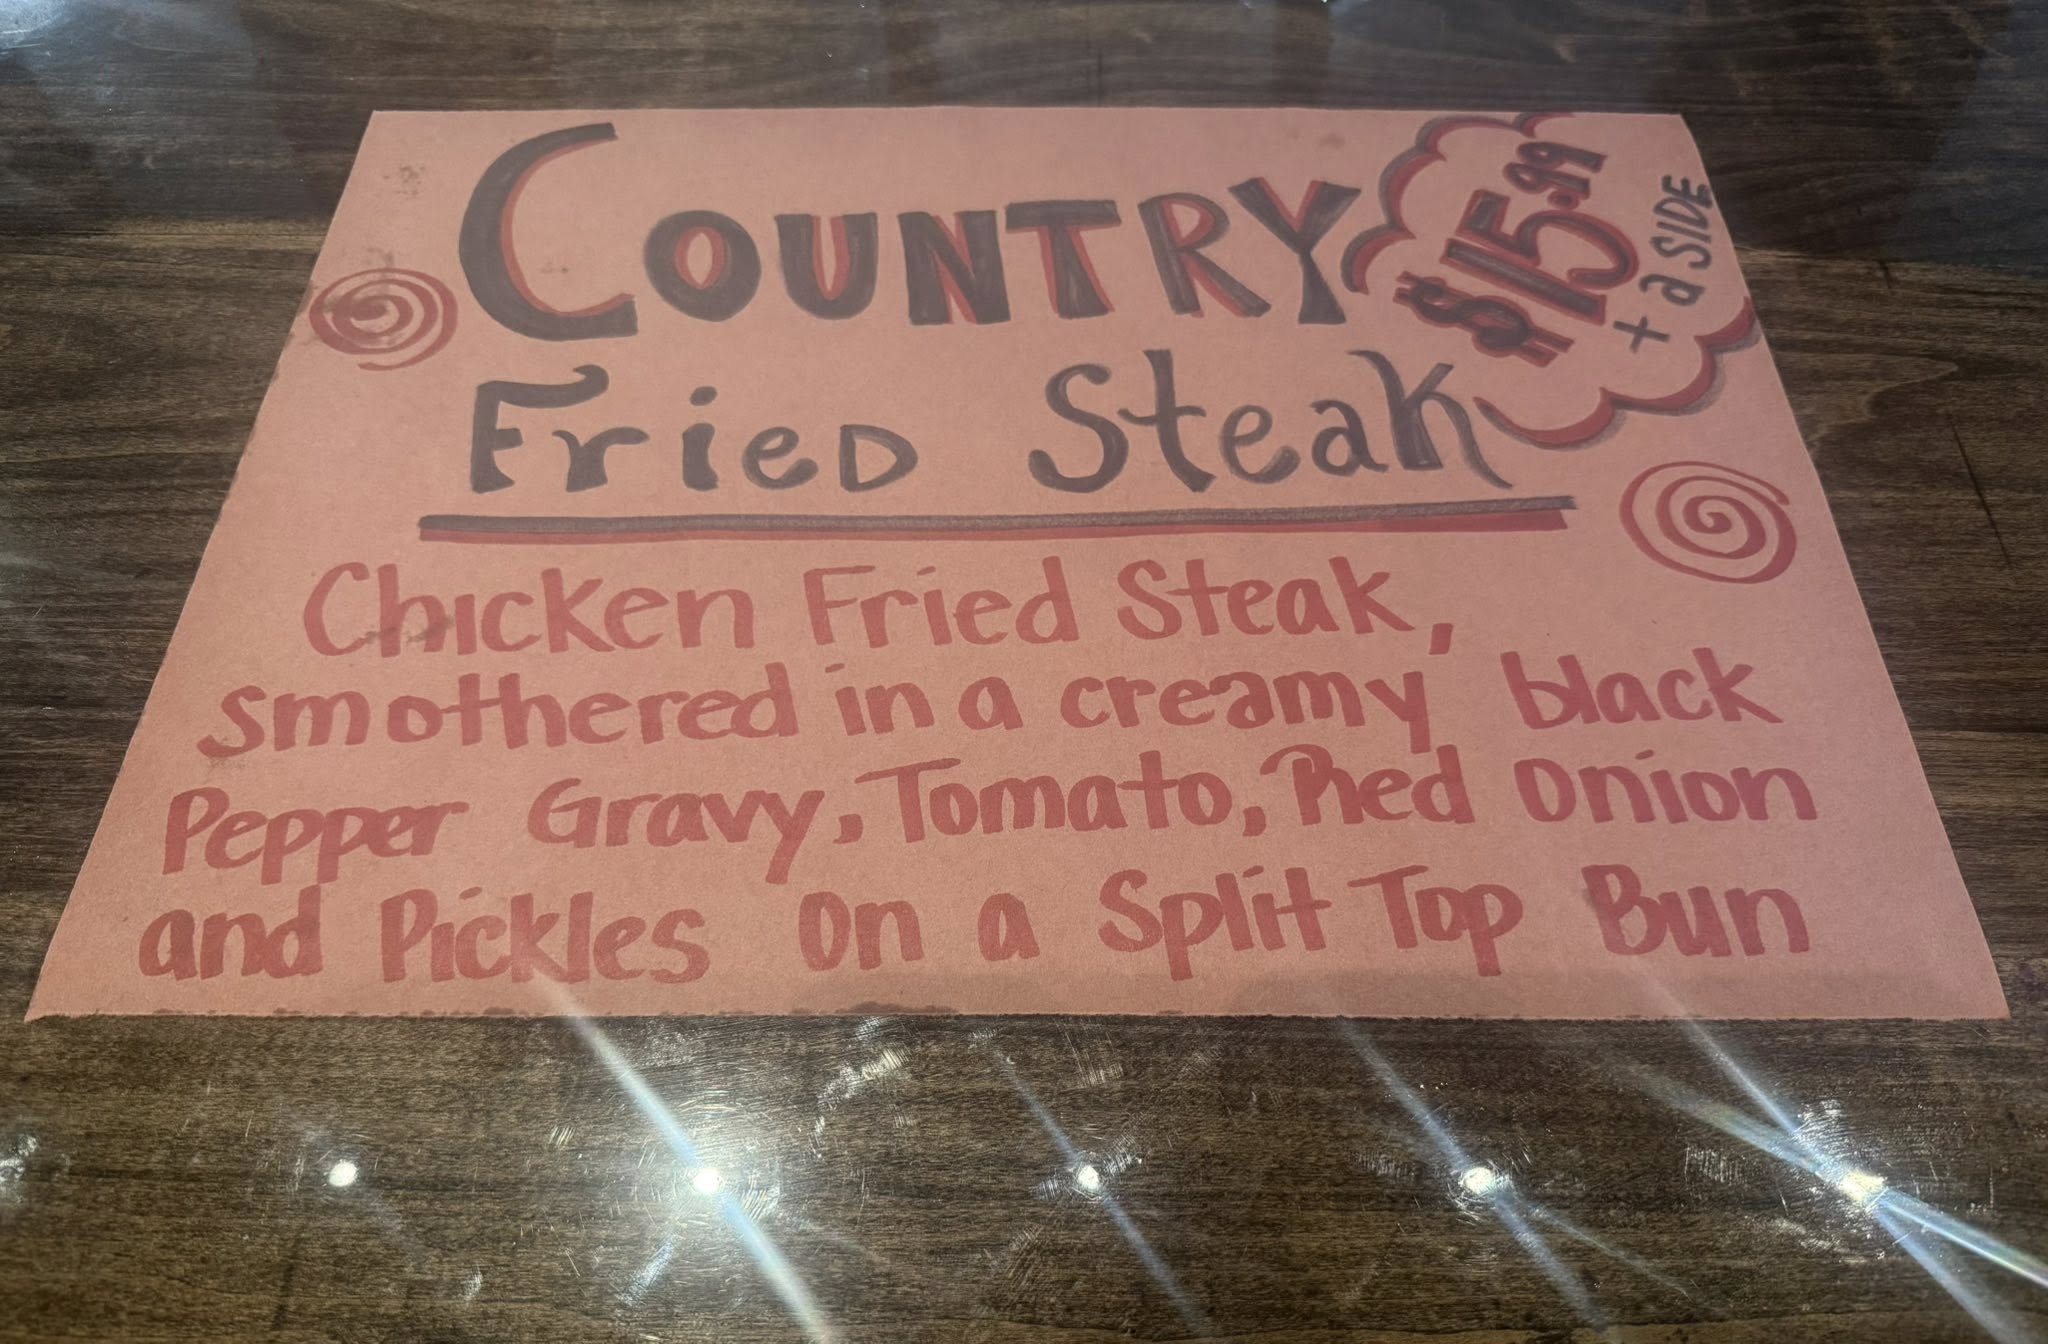 COUNTRY
Fried Steak
$15.99
+ a SIDE
Chicken Fried Steak,
smothered in a creamy black
Pepper Gravy, Tomato, Red Onion
and Pickles on a Split Top Bun